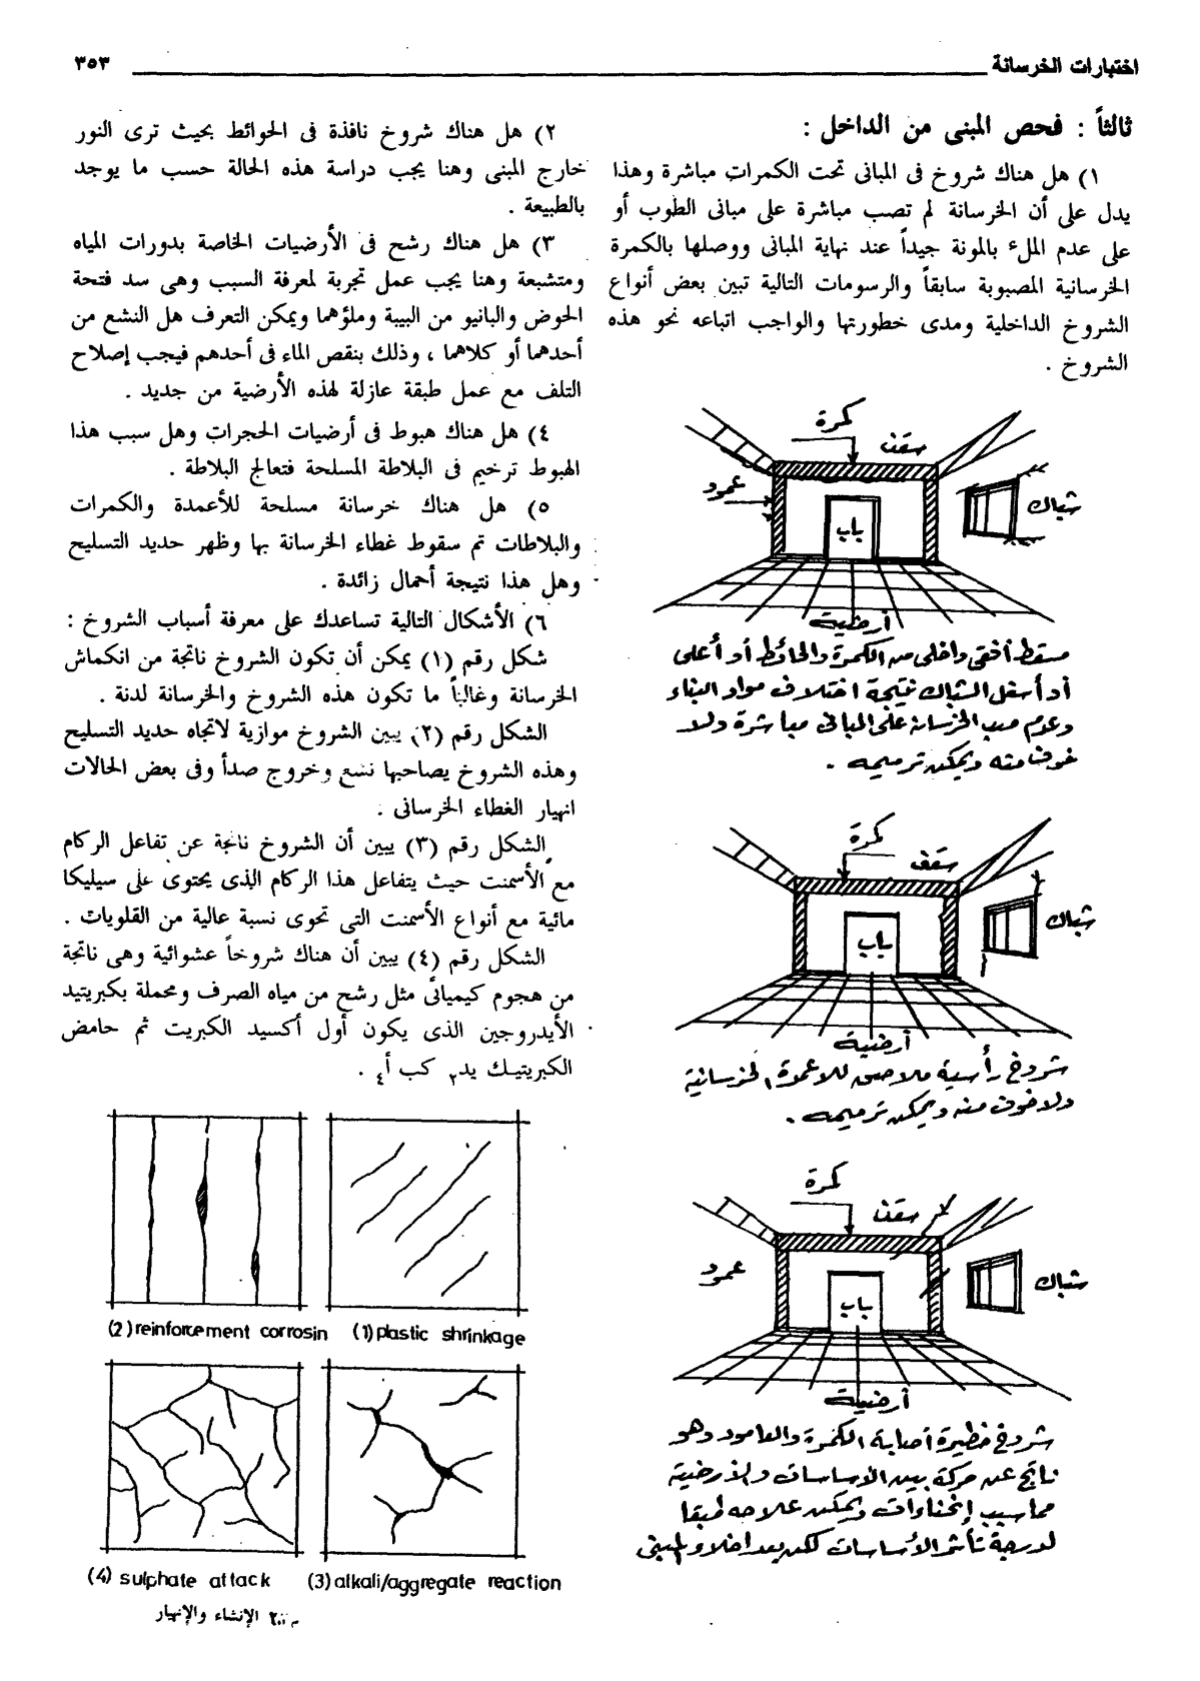 اختبارات الخرسانة
٣٥٣
ثالثاً : فحص المبنى من الداخل :
١) هل هناك شروخ فى المبانى تحت الكمرات مباشرة وهذا
يدل على أن الخرسانة لم تصب مباشرة على مبانى الطوب أو
على عدم الملء بالمونة جيداً عند نهاية المبانى ووصلها بالكمرة
الخرسانية المصبوبة سابقاً والرسومات التالية تبين بعض أنواع
الشروخ الداخلية ومدى خطورتها والواجب اتباعه نحو هذه
الشروخ .
كمرة
سقف
عمود
شباك
باب
أرضية
مسقط أفقى داخلى من الكمرة والحائط أو أعلى
أو أسفل الشباك نتيجة اختلاف مواد البناء
وعدم صب الخرسانة على المبانى مباشرة ولا
خوف منه ويمكن ترميمه .
كمرة
سقف
شباك
باب
أرضية
شروخ رأسية ملاصق للاعمدة الخرسانية
ولا خوف منه ويمكن ترميمه .
كمرة
سقف
عمود
شباك
باب
أرضية
شروخ خطيرة أصابة الكمرة والعامود وهو
ناتج عن حركة بين الأساسات والأرضية
مما سبب إنحناءات ويمكن علاجه طبقا
لدرجة تأثر الأساسات لكن بعد اخلاء المبنى
٢) هل هناك شروخ نافذة فى الحوائط بحيث ترى النور
خارج المبنى وهنا يجب دراسة هذه الحالة حسب ما يوجد
بالطبيعة .
٣) هل هناك رشح فى الأرضيات الخاصة بدورات المياه
ومتشبعة وهنا يجب عمل تجربة لمعرفة السبب وهى سد فتحة
الحوض والبانيو من البيبة وملؤهما ويمكن التعرف هل النشع من
أحدهما أو كلاهما ، وذلك بنقص الماء فى أحدهم فيجب إصلاح
التلف مع عمل طبقة عازلة لهذه الأرضية من جديد .
٤) هل هناك هبوط فى أرضيات الحجرات وهل سبب هذا
الهبوط ترخيم فى البلاطة المسلحة فتعالج البلاطة .
٥) هل هناك خرسانة مسلحة للأعمدة والكمرات
والبلاطات تم سقوط غطاء الخرسانة بها وظهر حديد التسليح
وهل هذا نتيجة أحمال زائدة .
٦) الأشكال التالية تساعدك على معرفة أسباب الشروخ :
شكل رقم (١) يمكن أن تكون الشروخ ناتجة من انكماش
الخرسانة وغالباً ما تكون هذه الشروخ والخرسانة لدنة .
الشكل رقم (٢) يبين الشروخ موازية لاتجاه حديد التسليح
وهذه الشروخ يصاحبها نشع وخروج صدأ وفى بعض الحالات
انهيار الغطاء الخرسانى .
الشكل رقم (٣) يبين أن الشروخ ناتجة عن تفاعل الركام
مع الأسمنت حيث يتفاعل هذا الركام الذى يحتوى على سيليكا
مائية مع أنواع الأسمنت التى تحوى نسبة عالية من القلويات .
الشكل رقم (٤) يبين أن هناك شروخاً عشوائية وهى ناتجة
من هجوم كيميائى مثل رشح من مياه الصرف ومحملة بكبريتيد
الأيدروجين الذى يكون أول أكسيد الكبريت ثم حامض
الكبريتيك يد٢ كب أ٤ .
(2) reinforcement corrosin
(1) plastic shrinkage
(4) sulphate attack
(3) alkali/aggregate reaction
الإنشاء والإنهيار